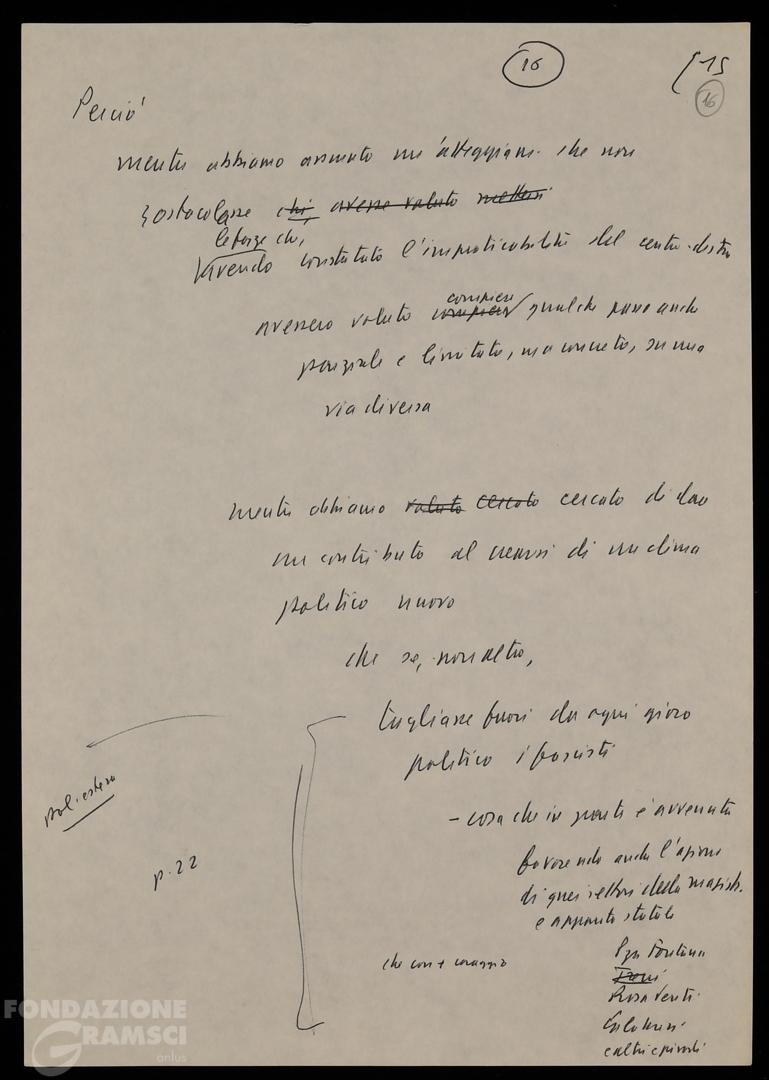 16
15
16
Perciò
mentre abbiamo assunto un'atteggiam. che non
ostacolasse chi avesse voluto mettersi
le forze che,
avendo constatato l'impraticabilità del centro-destra
compiere
avessero voluto compiere qualche passo anche
parziale e limitato, ma concreto, su una
via diversa
mentre abbiamo voluto cercato cercato di dare
un contributo al crearsi di un clima
politico nuovo
che se, non altro,
tagliasse fuori da ogni gioco
politico i fascisti
- cosa che in parte è avvenuta
favorendo anche l'azione
di quei settori della magistr.
e apparato statale
pol. estera
p. 22
che con + coraggio
Pza Fontana
Rosa Venti
e altri episodi
FONDAZIONE
GRAMSCI
onlus